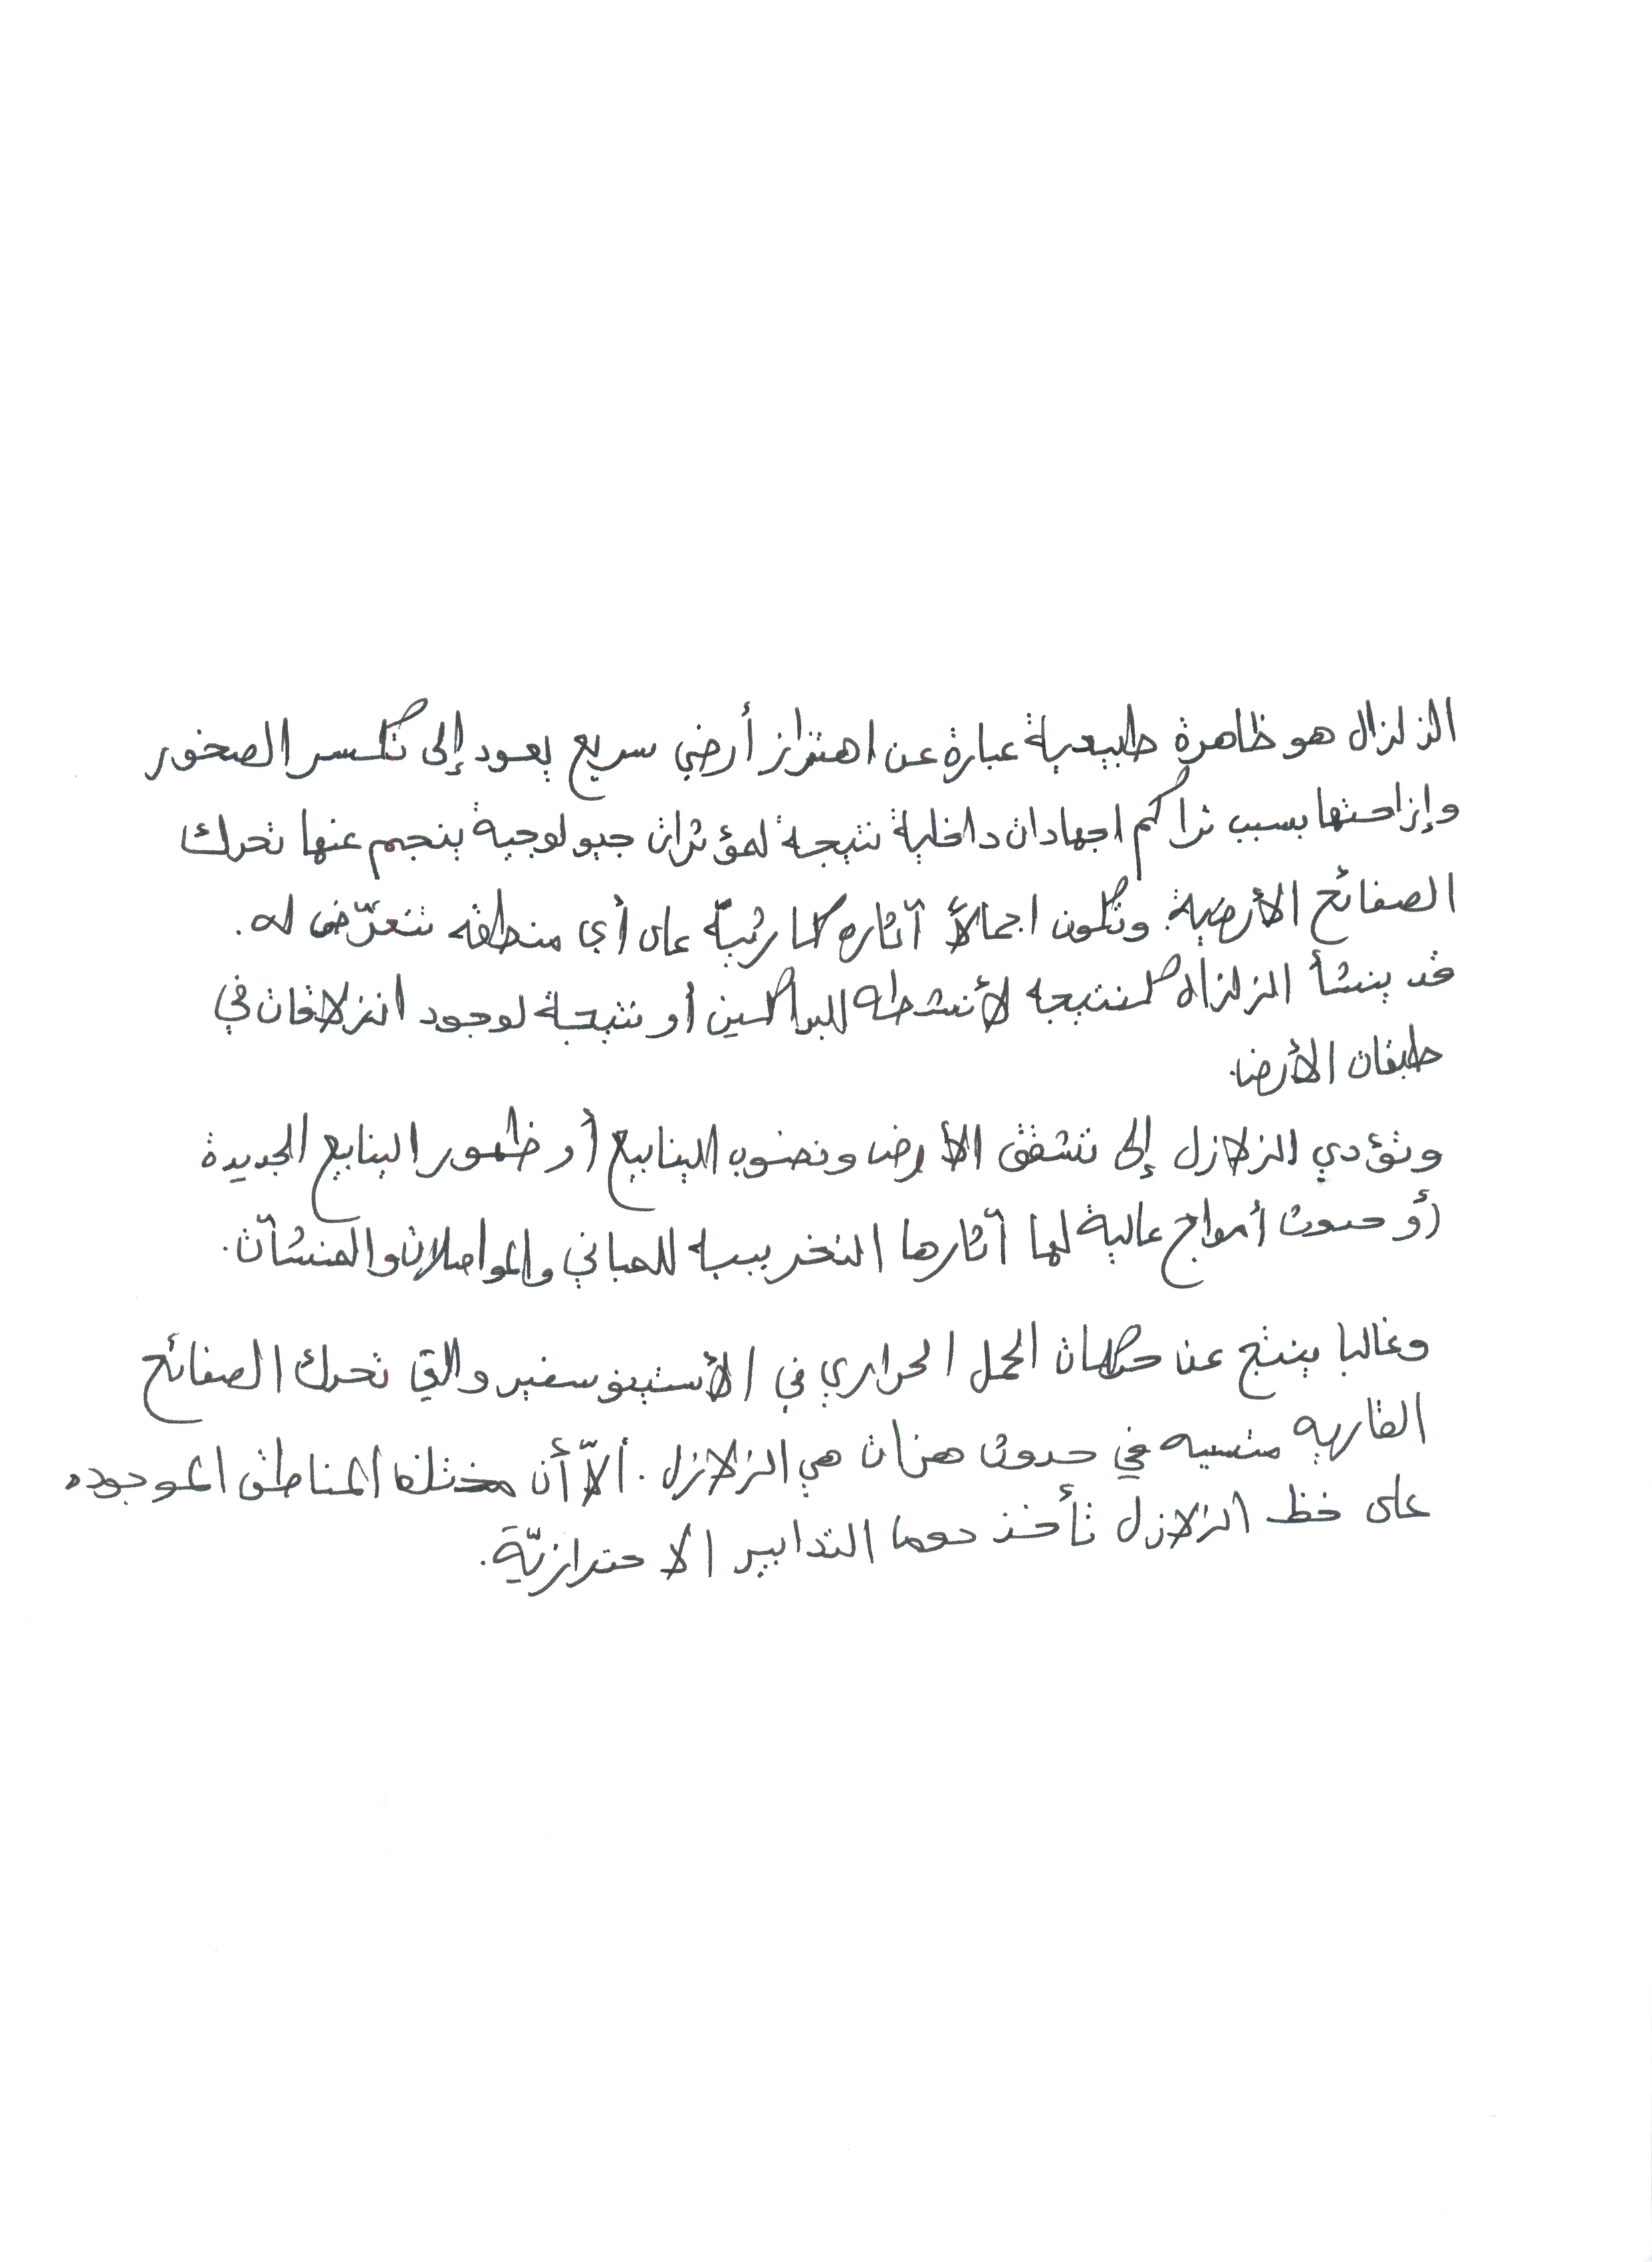 الزلزال هو ظاهرة طبيعية عبارة عن اهتزاز أرضي سريع يعود إلى تكسر الصخور
وإزاحتها بسبب تراكم اجهادات داخلية نتيجة لمؤثرات جيولوجية ينجم عنها تحرك
الصفائح الأرضية. وتكون اجمالاً آثاره كارثيّة على أي منطقه تتعرّض له.
قد ينشأ الزلزال كنتيجه لأنشطه البراكين أو نتيجة لوجود انزلاقات في
طبقات الأرض.
وتؤدي الزلازل إلى تشقق الأرض ونضوب الينابيع أو ظهور الينابيع الجديدة
أو حدوث أمواج عالية لها آثارها التخريبيه للمباني والمواصلات والمنشآت.
وغالبا ينتج عن حركات الحمل الحراري في الأستينوسفير والتي تحرك الصفائح
القاريه متسببه في حدوث هزات هي الزلازل. ألاّ أن مختلف المناطق الموجوده
على خط الزلازل تأخذ دوما التدابير الاحترازيّة.